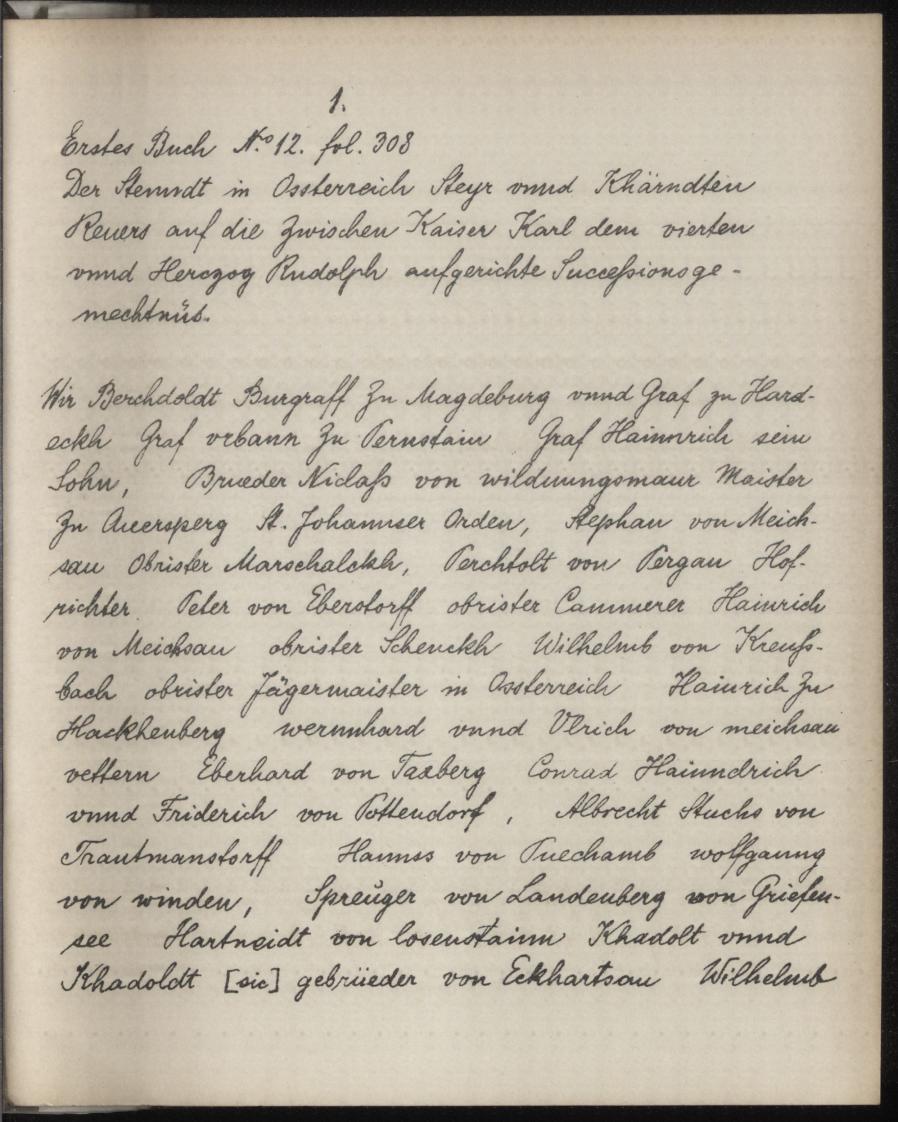 1.
Erstes Buch No 12. fol. 308
Der Stenndt in Ossterreich Steyr vnnd Khärndten
Reuers auf die zwischen Kaiser Karl dem vierten
vnnd Herczog Rudolph aufgerichte Successionsge-
mechtnüs.
Wir Berchdoldt Burgraff zu Magdeburg vnnd Graf zu Hard-
eckh Graf vrbann zu Pernstain Graf Hainnrich sein
Sohn, Brueder Niclaß von wildnungsmaur Maister
zu Auersperg St. Johannser Orden, Stephan von Meich-
sau Obrister Marschalckh, Perchtolt von Pergau Hof-
richter Peter von Eberstorff obrister Cammerer Hainrich
von Meichsau obrister Schenckh Wilhelmb von Kreuß-
bach obrister Jägermaister in Ossterreich Hainrich zu
Hackhenberg wernnhard vnnd Vlrich von meichsau
vettern Eberhard von Taxberg Conrad Hainndrich
vnnd Friderich von Pottendorf, Albrecht Stuchs von
Trautmanstorff Hannss von Puechamb wolfganng
von winden, Spreüger von Landenberg von Griefen-
see Hartneidt von losenstainn Khadolt vnnd
Khadoldt [sic] gebrüeder von Eckhartsau Wilhelmb